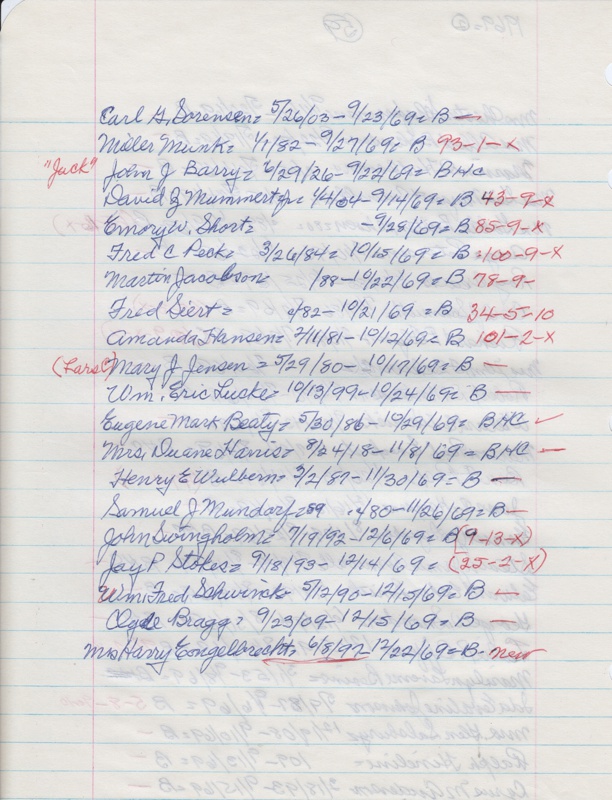 Carl G. Sorensen = 5/26/03 - 9/23/69 = B —
Miller Munk = 1/1/82 - 9/27/69 = B 93-1-X
"Jack" John J Barry = 6/29/26 - 9/22/69 = BHC
David Z Mummert Jr = 1/4/04 - 9/14/69 = B 43-9-X
Emory W. Short = - 9/28/69 = B 85-9-X
Fred C Peck = 3/26/84 = 10/15/69 = B = 100-9-X
Martin Jacobson = /88 - 10/22/69 = B 78-9-
Fred Siert = /82 - 10/21/69 = B 34-5-10
Amanda Hansen = 2/11/81 - 10/12/69 = B 101-2-X
(Lars C) Mary J. Jensen = 5/29/80 - 10/17/69 = B —
Wm. Eric Lucke = 10/13/99 - 10/24/69 = B —
Eugene Mark Beaty = 5/30/86 - 10/29/69 = BHC ✓
Mrs. Duane Harris = 8/24/18 - 11/8/69 = BHC —
Henry E Wulbern = 3/2/87 - 11/30/69 = B —
Samuel J Mundorf = 89 /80 - 11/26/69 = B —
John Swingholm = 7/19/92 - 12/6/69 = B (9-13-X)
Jay P Stokes = 9/18/93 - 12/14/69 = (25-2-X)
Wm. Fred Schwinck = 5/12/90 - 12/15/69 = B —
Clyde Bragg = 9/23/09 - 12/15/69 = B —
Mrs Harry Engelbrecht = 6/8/92 12/22/69 = B - new